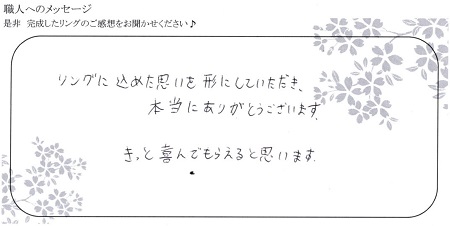 職人へのメッセージ
是非 完成したリングのご感想をお聞かせください♪
リングに込めた思いを形にしていただき、
本当にありがとうございます。
きっと喜んでもらえると思います。